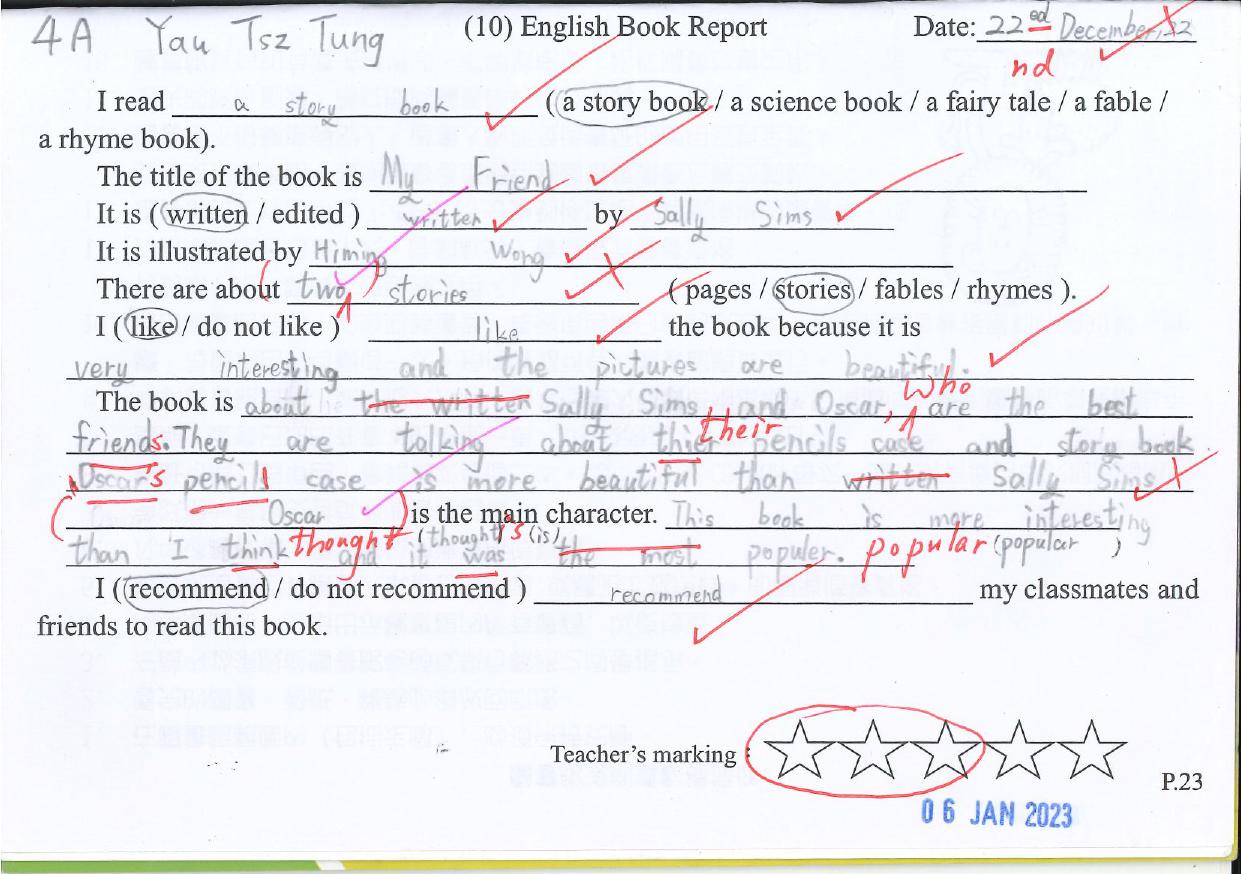 4A Yau Tsz Tung (10) English Book Report Date: 22ed December, 22
nd
I read a story book (a story book / a science book / a fairy tale / a fable /
a rhyme book).
The title of the book is My Friend
It is ( written / edited ) written by Sally Sims
It is illustrated by Himing Wong
There are about two stories ( pages / stories / fables / rhymes ).
I ( like / do not like ) like the book because it is
very interesting and the pictures are beautiful.
The book is about the written Sally Sims and Oscar, who are the best
friends. They are talking about thier their pencils case and story book
Oscar's pencils case is more beautiful than written Sally Sims
Oscar is the main character. This book is more interesting
than I think thought (thought) 's (is) and it was the most populer. popular (popular )
I ( recommend / do not recommend ) recommend my classmates and
friends to read this book.
Teacher's marking :
P.23
06 JAN 2023